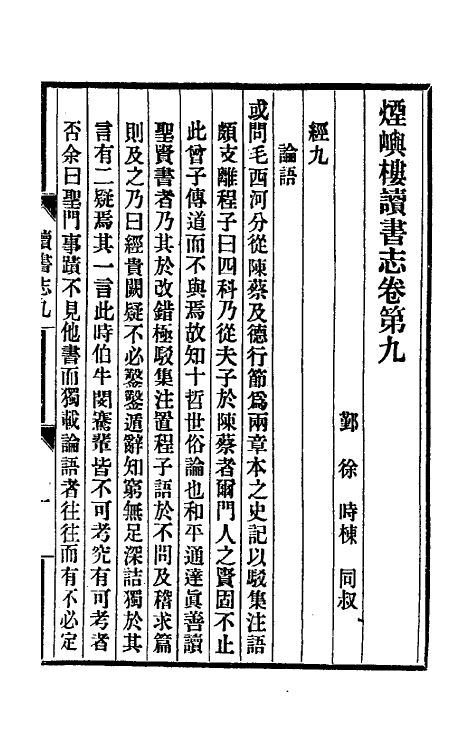 煙嶼樓讀書志卷第九
鄞　徐　時棟　同叔
經九
論語
或問毛西河分從陳蔡及德行節爲兩章本之史記以駁集注語
頗支離程子曰四科乃從夫子於陳蔡者爾門人之賢固不止
此曾子傳道而不與焉故知十哲世俗論也和平通達眞善讀
聖賢書者乃其於改錯極駁集注置程子語於不問及稽求篇
則及之乃曰經貴闕疑不必鑿鑿遁辭知窮無足深詰獨於其
言有二疑焉其一言此時伯牛閔騫輩皆不可考究有可考者
否余曰聖門事蹟不見他書而獨載論語者往往而有不必定
讀書志九
一